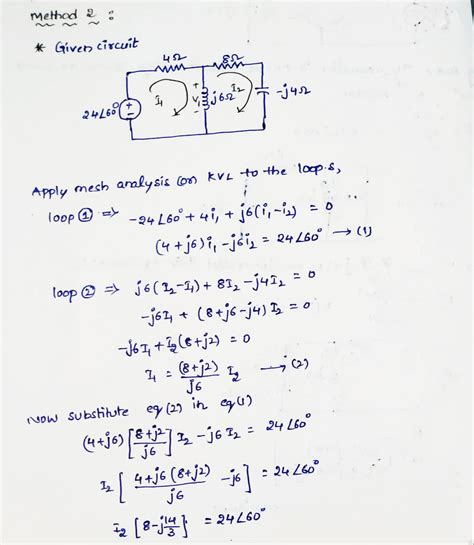 Method 2 :
* Given circuit
4Ω 8Ω
24∠60° + − I₁ + V₁ − j6Ω I₂ -j4Ω
Apply mesh analysis (or) KVL to the loops,
loop ① ⇒ -24∠60° + 4i₁ + j6(i₁-i₂) = 0
(4+j6)i₁ - j6i₂ = 24∠60° → (1)
loop ② ⇒ j6(I₂-I₁) + 8I₂ - j4I₂ = 0
-j6I₁ + (8+j6-j4)I₂ = 0
-j6I₁ + I₂(8+j2) = 0
I₁ = (8+j2)/j6 I₂ → (2)
Now substitute eq(2) in eq(1)
(4+j6) [8+j2/j6] I₂ - j6 I₂ = 24∠60°
I₂ [4+j6(8+j2)/j6 - j6] = 24∠60°
I₂ [8-j14/3] = 24∠60°